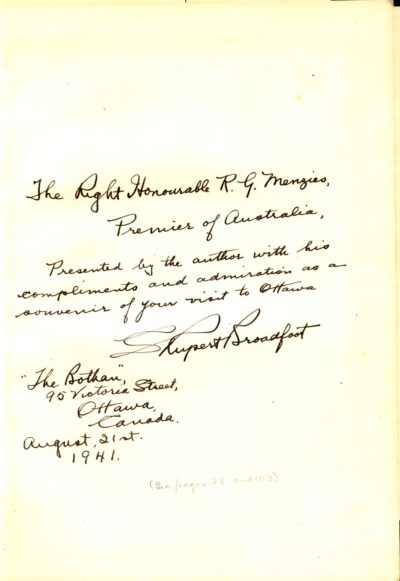 The Right Honourable R. G. Menzies,
Premier of Australia,
Presented by the author with his
compliments and admiration as a
souvenir of your visit to Ottawa
S Rupert Broadfoot
"The Bothan",
95 Victoria Street,
Ottawa,
Canada.
August, 21st.
1941.
(See pages 25 and 103)